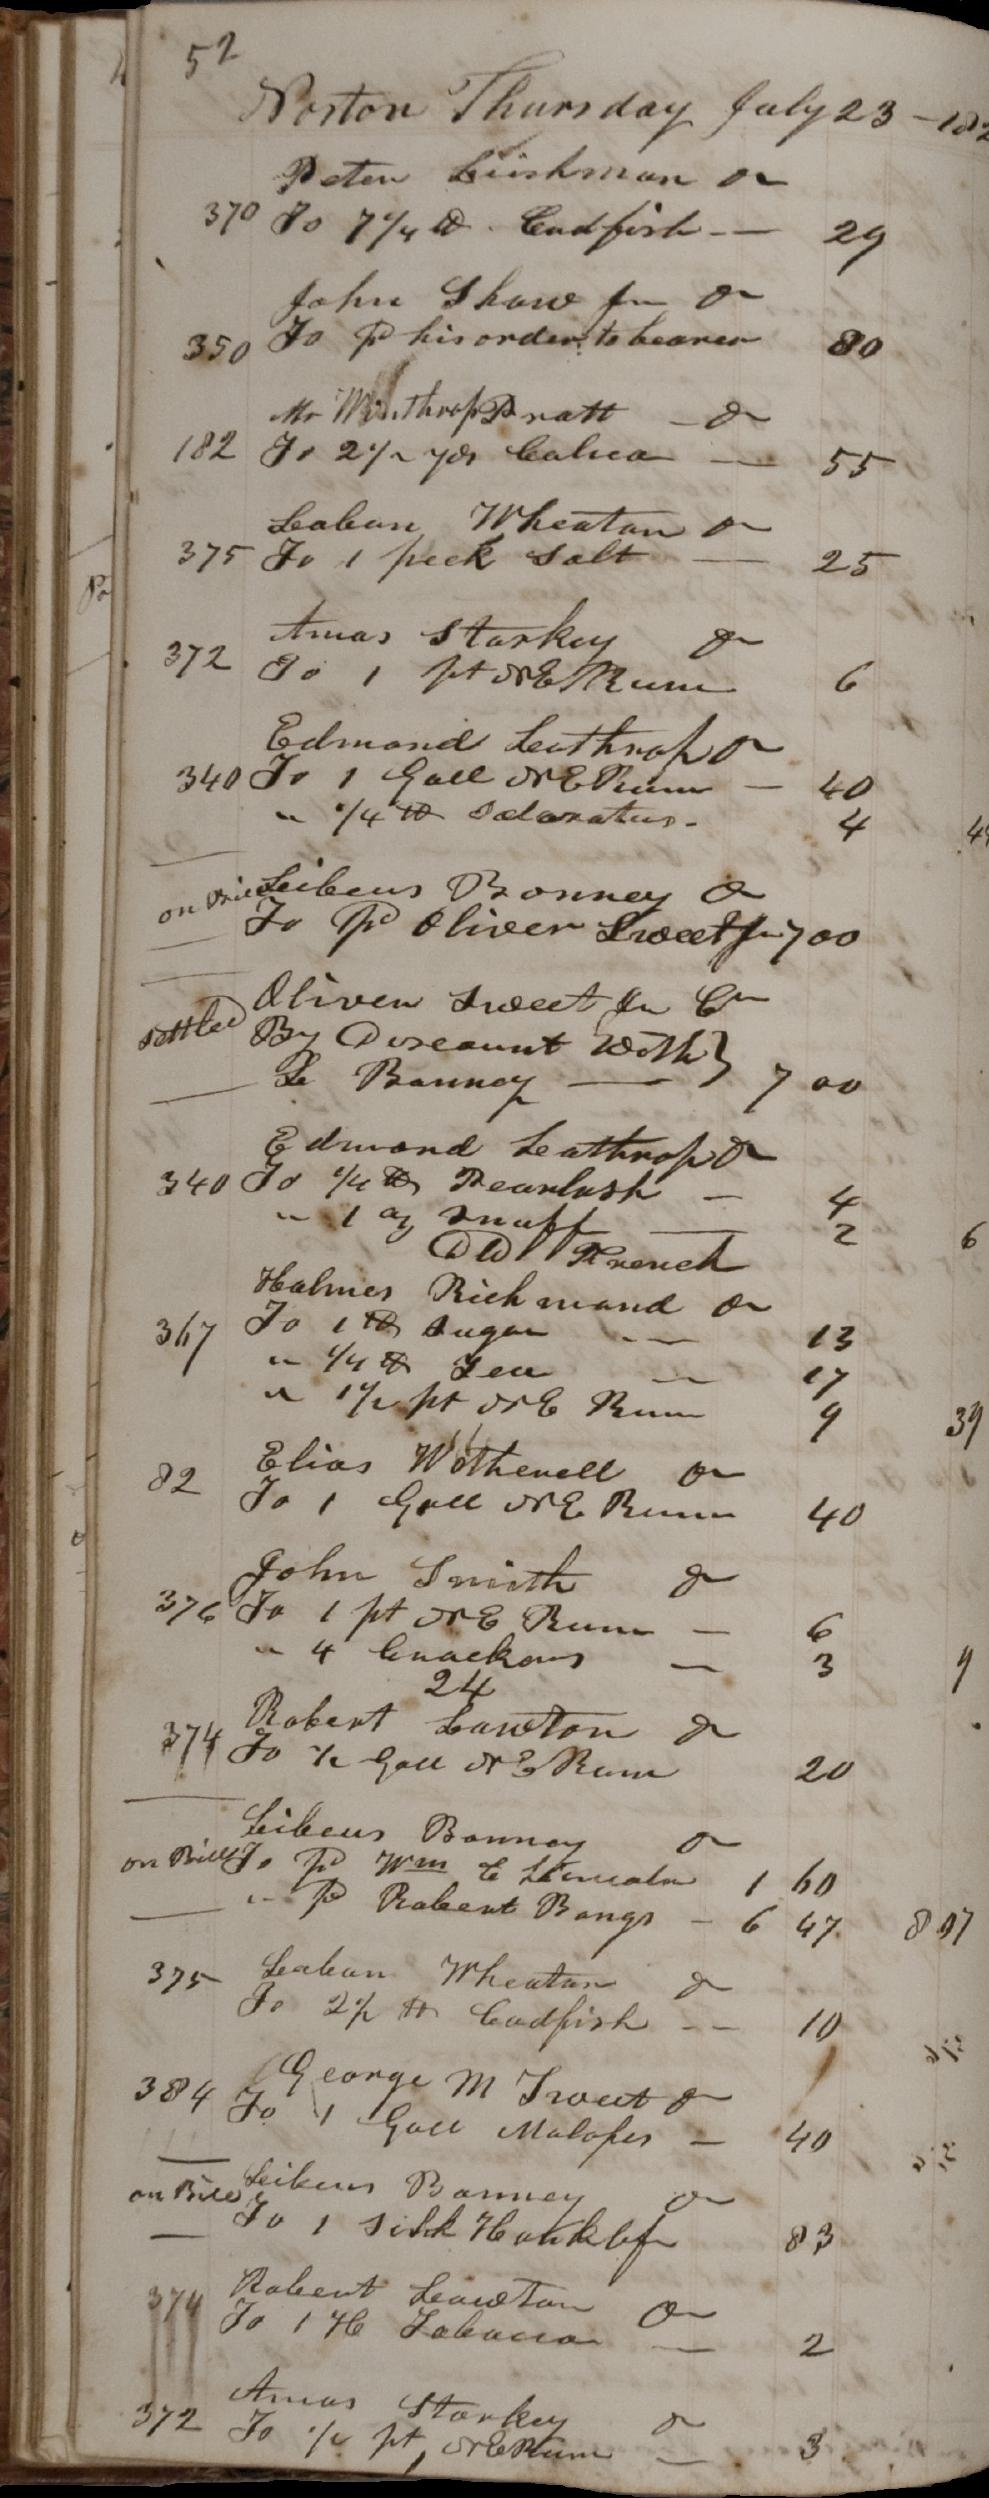 52
Norton Thursday July 23 - 182
Peter Cushman Dr
370 To 7 1/4 lb Codfish — 29
John Shaw Jr Dr
350 To pd his order to bearer 80
Mr Winthrop Pratt — Dr
182 To 2 1/2 yds Calico — 55
Laban Wheaton Dr
375 To 1 peck Salt — 25
Amas Starkey Dr
372 To 1 pt N E Rum 6
Edmond Leathrop Dr
340 To 1 Gall N E Rum — 40
" 1/4 lb Salaratus - 4 44
Leibeus Bonney Dr
on Bill To pd Oliver Sweet Jr 7 00
Oliver Sweet Jr Cr
settled By Discount With }
Le Bonney — } 7 00
Edmond Leathrop Dr
340 To 1/4 lb Pearlash — 4
" 1 oz Snuff — 2 6
DW French
Holmes Richmond Dr
367 To 1 lb Sugar — 13
" 1/4 lb Tea — 17
" 1 1/2 pt N E Rum 9 39
Elias Wetherell Dr
82 To 1 Gall N E Rum 40
John Smith Dr
376 To 1 pt N E Rum — 6
" 4 Crackers — 3 9
24
Robert Lawton Dr
374 To 1/2 Gall N E Rum 20
Leibeus Bonney Dr
on Bill To pd Wm C Lincoln 1 60
" pd Robert Bangs — 6 47 8 07
375 Laban Wheaton Dr
To 2 1/2 lb Codfish — 10
384 George M Sweet Dr
To 1 Gall Molases — 40
on Bill Leibeus Bonney Dr
To 1 Silk Handkf 83
374 Robert Lawton Dr
To 1 H Tobacco — 2
Amas Starkey Dr
372 To 1/2 pt N E Rum — 3